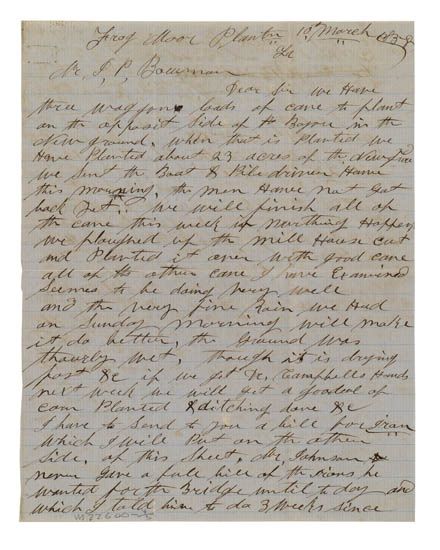 Frog Moor Plantn 10th March
La
Mr. J, P, Bowman
Dear Sir we Have
three waggon loads of cane to plant
on the opposit Side of the Bayou in the
New ground. When that is Planted we
Have Planted about 23 acres of the New
we Sent the Boat & Pile driver Home
this morning, the men Have not got
back yet. we will finish all of
the cane this week if northing Happen
we ploughed up the mill House cut
and Planted it over with good cane
all of the other cane I have Examined
seems to be doing very well
and the very fine Rain we Had
on Sunday morning will make
it do better, the ground was
wet, though it is drying
fast &c if we get Campbells Hands
next week we will get a gooddeal of
corn Planted & ditching done &c
I have to Send to you a bill for Iron
which I will Put on the other
Side, of this Sheet, Mr. Johnson
never gave a full bill of the Irons he
wanted for the Bridge until to day and
which I told him to do 3 weeks since